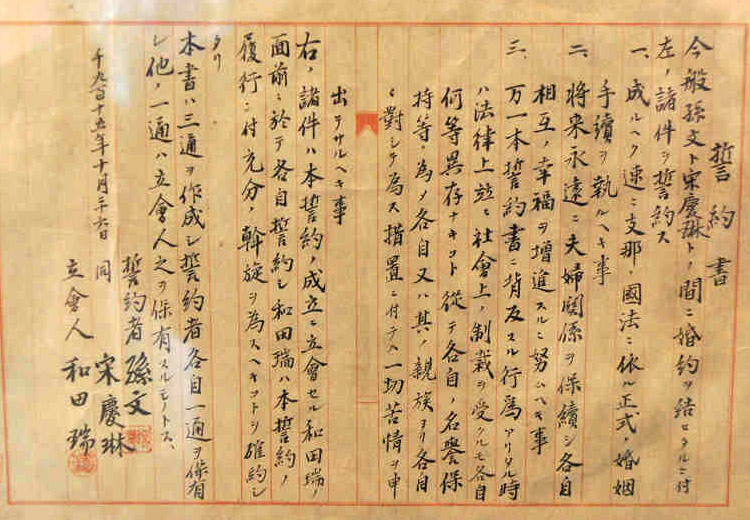 誓約書
今般孫文ト宋慶琳トノ間ニ婚約ヲ結ヒタルニ付
左ノ諸件ヲ誓約ス
一、成ルヘク速ニ支那ノ國法ニ依ル正式ノ婚姻
手續ヲ執ルヘキ事
二、將来永遠ニ夫婦関係ヲ保續シ各自
相互ノ幸福ヲ増進スルニ努ムヘキ事
三、万一本誓約書ニ背反スル行為アリタル時
ハ法律上並ニ社會上ノ制裁ヲ受クルモ各自
何等異存ナキコト從テ各自ノ名譽保
持等ノ為メ各自又ハ其ノ親族ヨリ各自
ニ對シテ為ス措置ニ付テハ一切苦情ヲ申
出テサルヘキ事
右ノ諸件ハ本誓約ノ成立ニ立會セル和田瑞ノ
面前ニ於テ各自誓約シ和田瑞ハ本誓約ノ
履行ニ付充分ノ斡旋ヲ為スヘキコトヲ確約シ
タリ
本書ハ三通ヲ作成シ誓約者各自一通ヲ保有
シ他ノ一通ハ立會人之ヲ保有スルモノトス、
誓約者 孫文
千九百十五年十月二十六日 同 宋慶琳
立會人 和田瑞